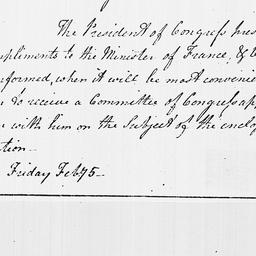 The President of Congress pres
mpliments to the Minister of France, & b
nformed, when it will be most convenie
to receive a Committee of Congress ap
with him on the Subject of the enclo
tion—
Friday Feby 5—